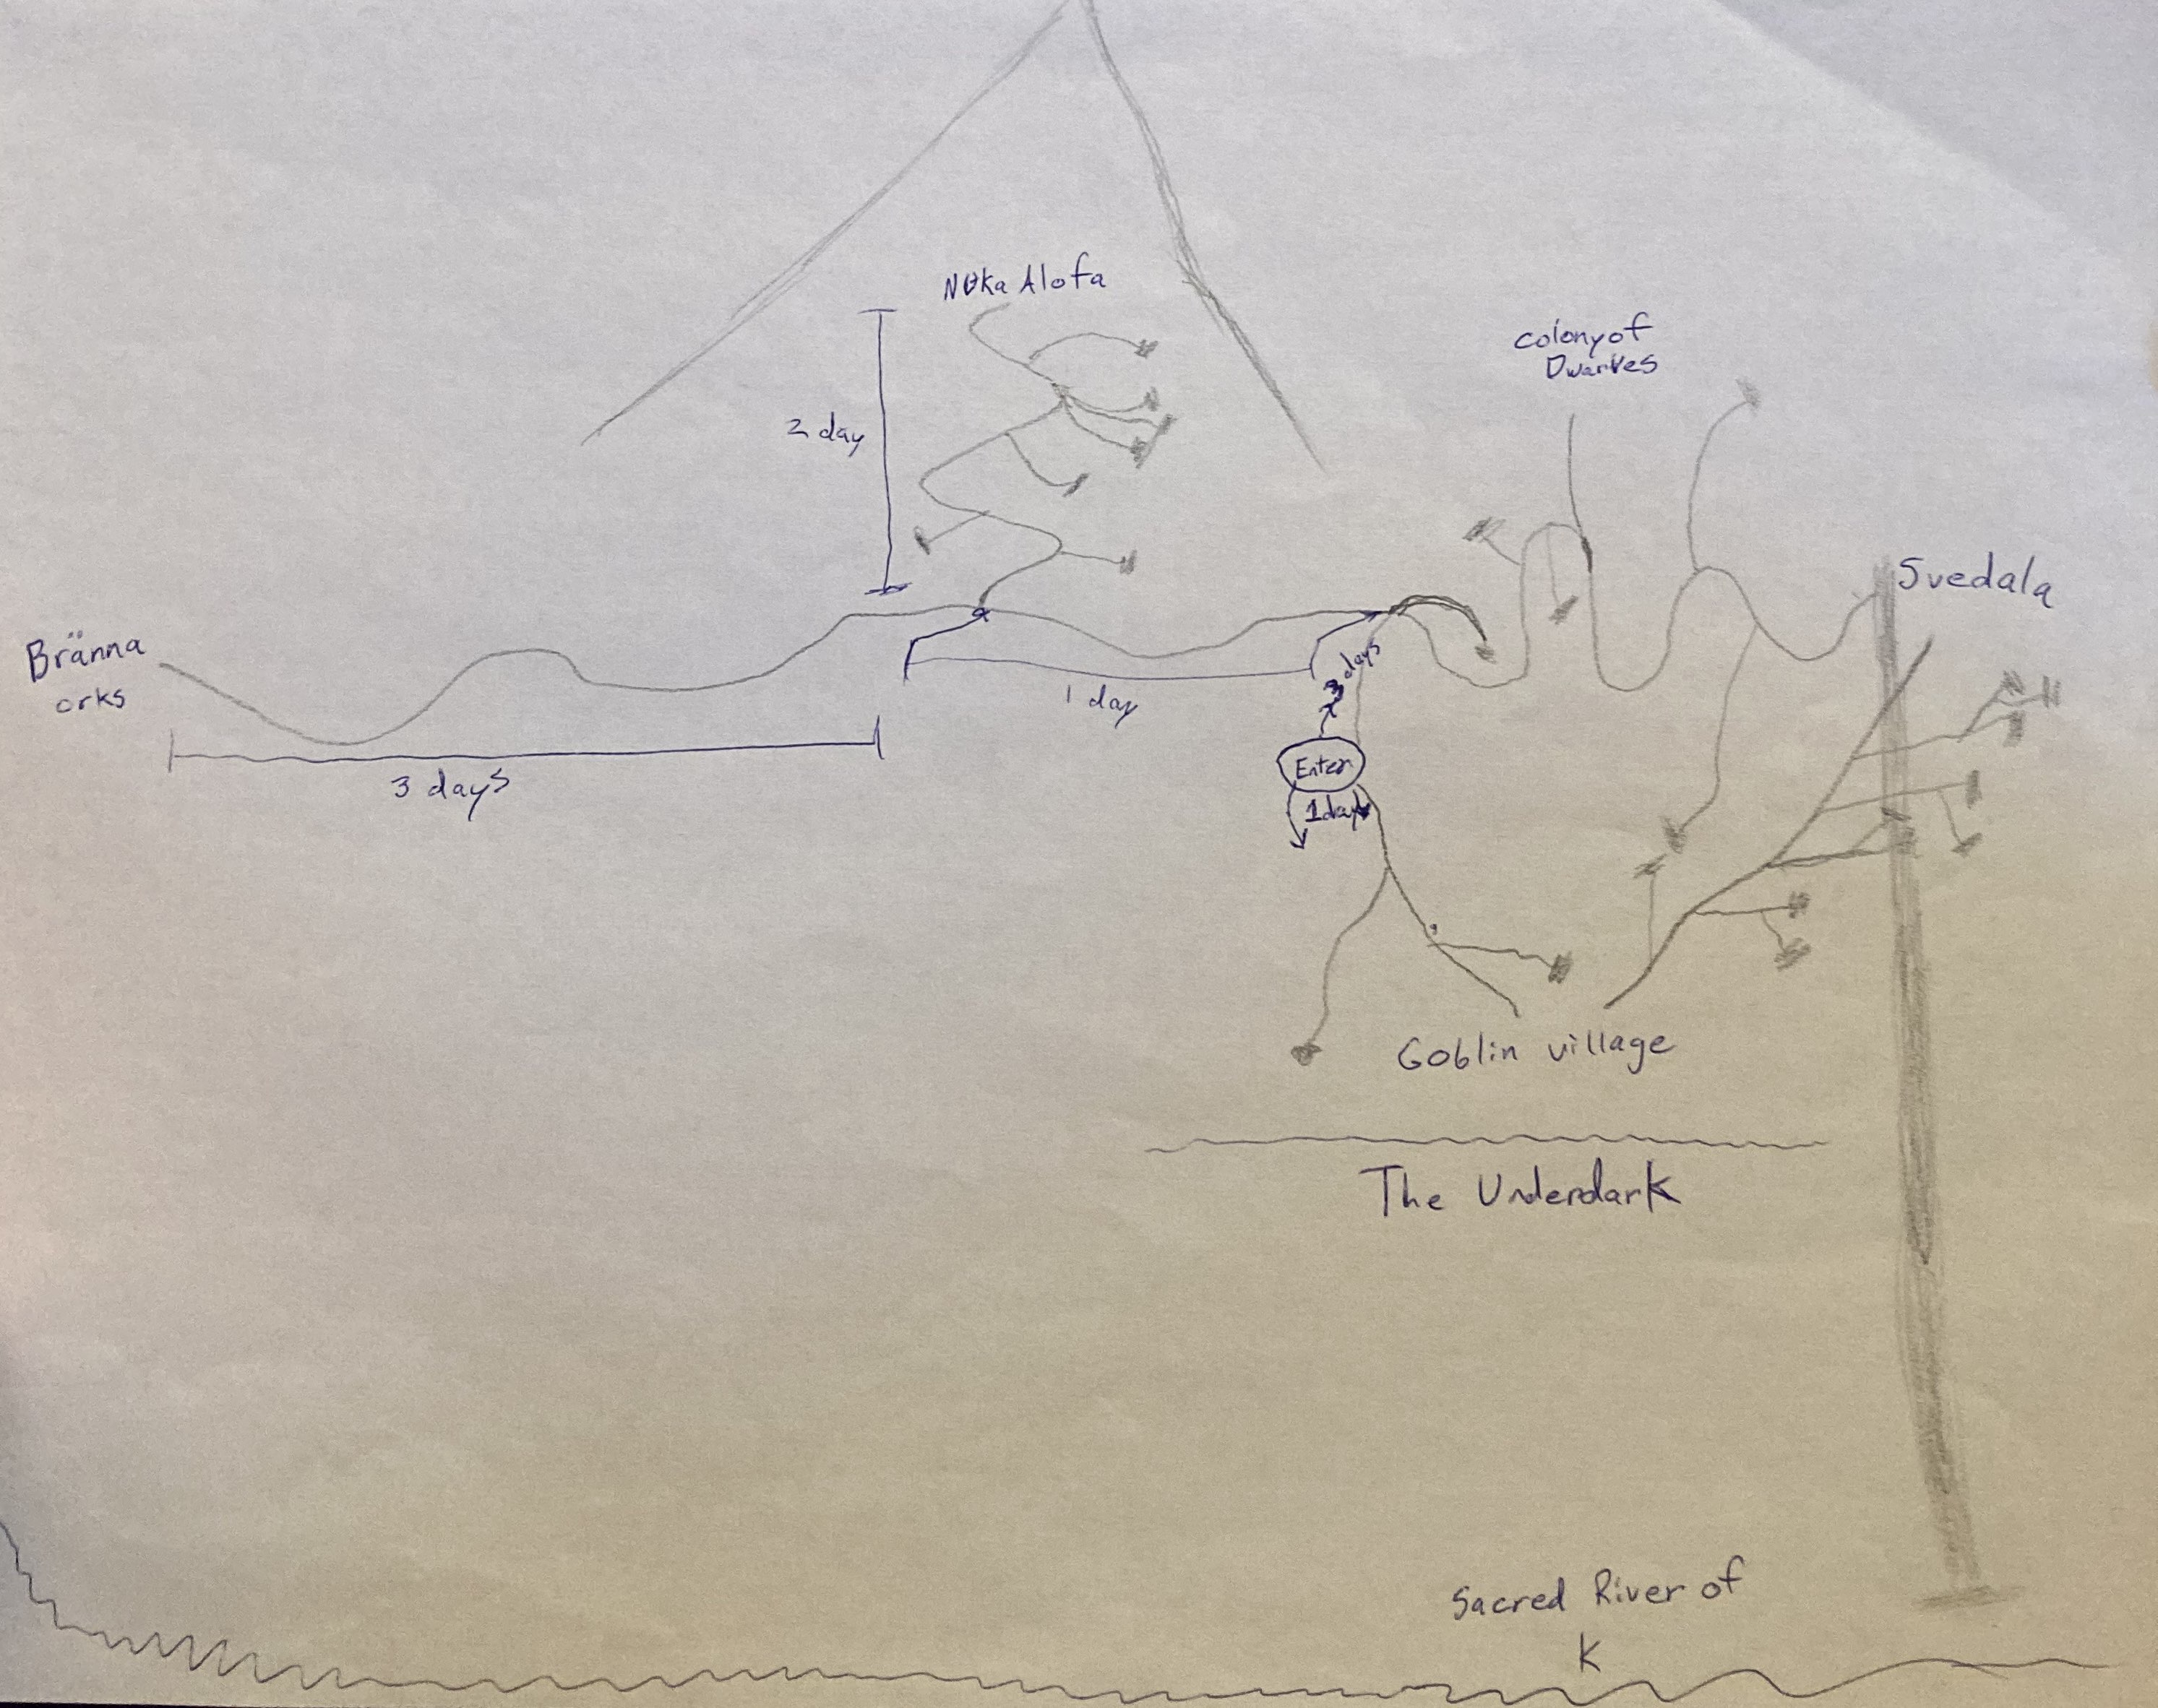 NUka Alofa
colony of
Dwarves
2 day
Svedala
Bränna
orks
1 day
3 days
Enter
1 day
3 days
Goblin village
The Underdark
Sacred River of
K